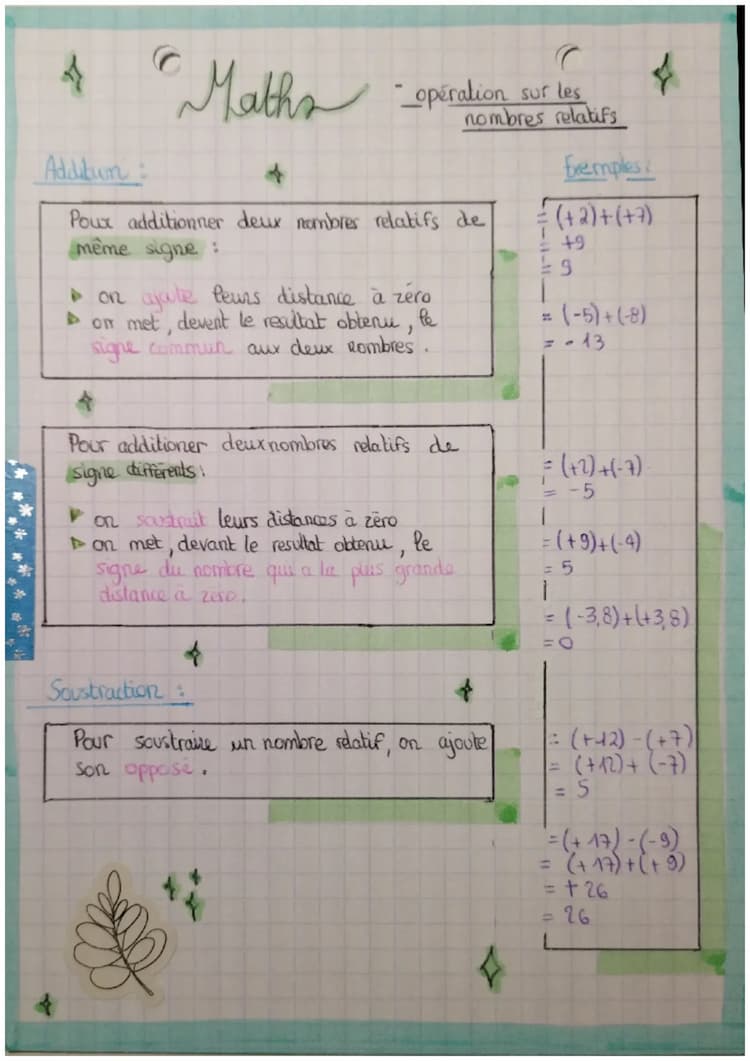 Maths
- opération sur les
nombres relatifs
Addition :
Pour additionner deux nombres relatifs de
même signe :
on ajoute leurs distance à zéro
on met, devent le resultat obtenu, le
signe commun aux deux nombres.
Pour additioner deux nombres relatifs de
signe différents :
on soustrait leurs distances à zéro
on met, devant le resultat obtenu, le
signe du nombre qui a la plus grande
distance à zéro.
Soustraction :
Pour soustraire un nombre relatif, on ajoute
son opposé.
Exemples :
= (+2)+(+7)
= +9
= 9
= (-5)+(-8)
= - 13
= (+2)+(-7)
= -5
= (+9)+(-4)
= 5
= (-3,8)+(+3,8)
= 0
= (+12) - (+7)
= (+12) + (-7)
= 5
= (+17) - (-9)
= (+17) + (+9)
= + 26
= 26